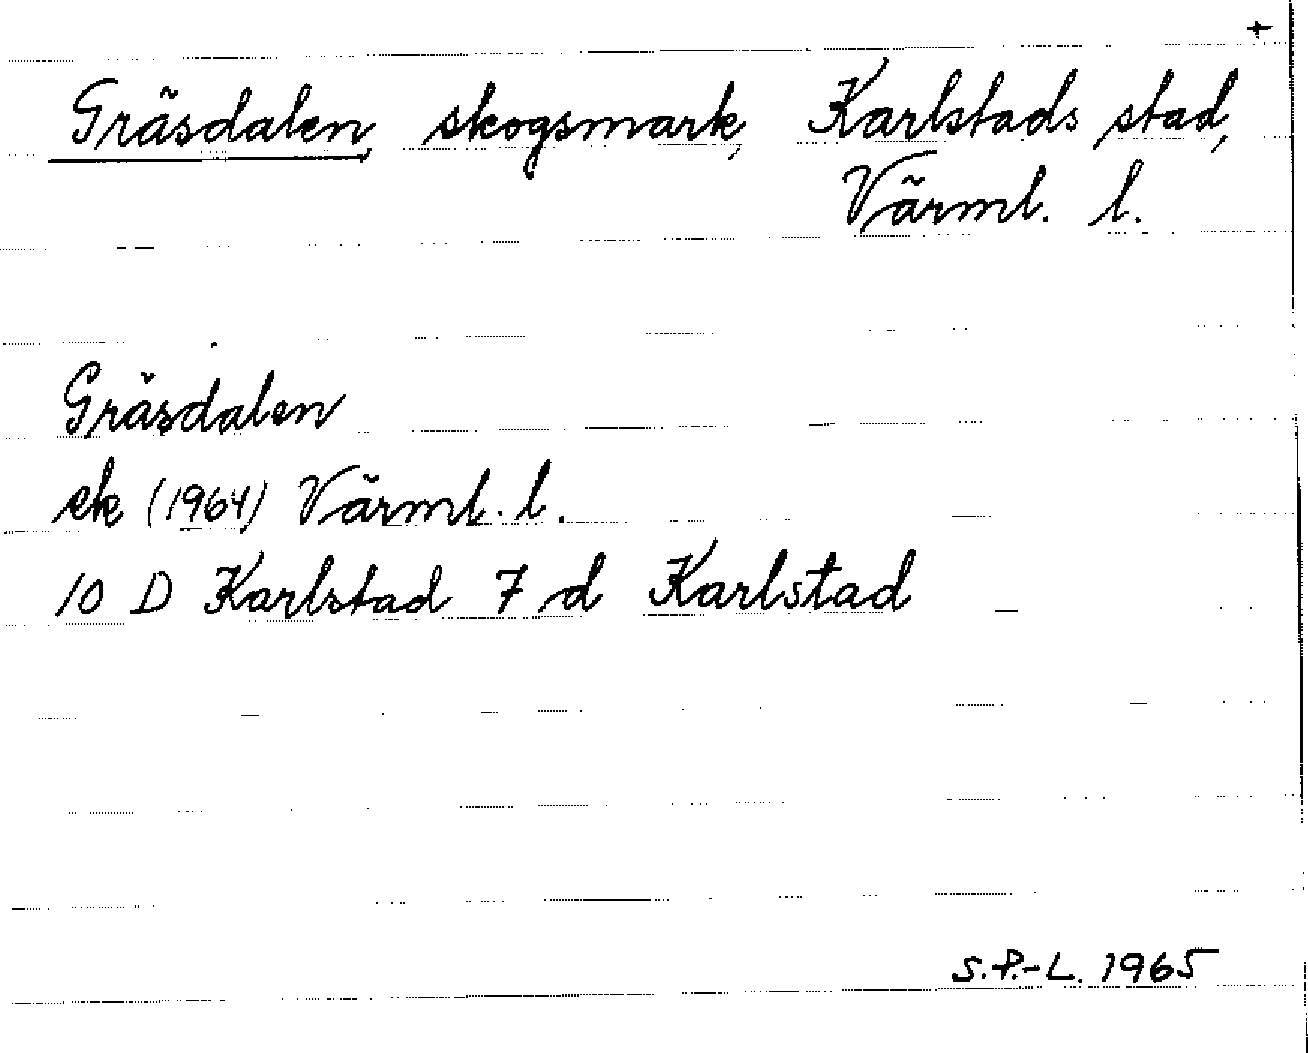 +
Gräsdalen, skogsmark, Karlstads stad,
Värml. l.
Gräsdalen
ek (1964) Värml. l.
10 D Karlstad 7 d Karlstad
S.P.-L. 1965